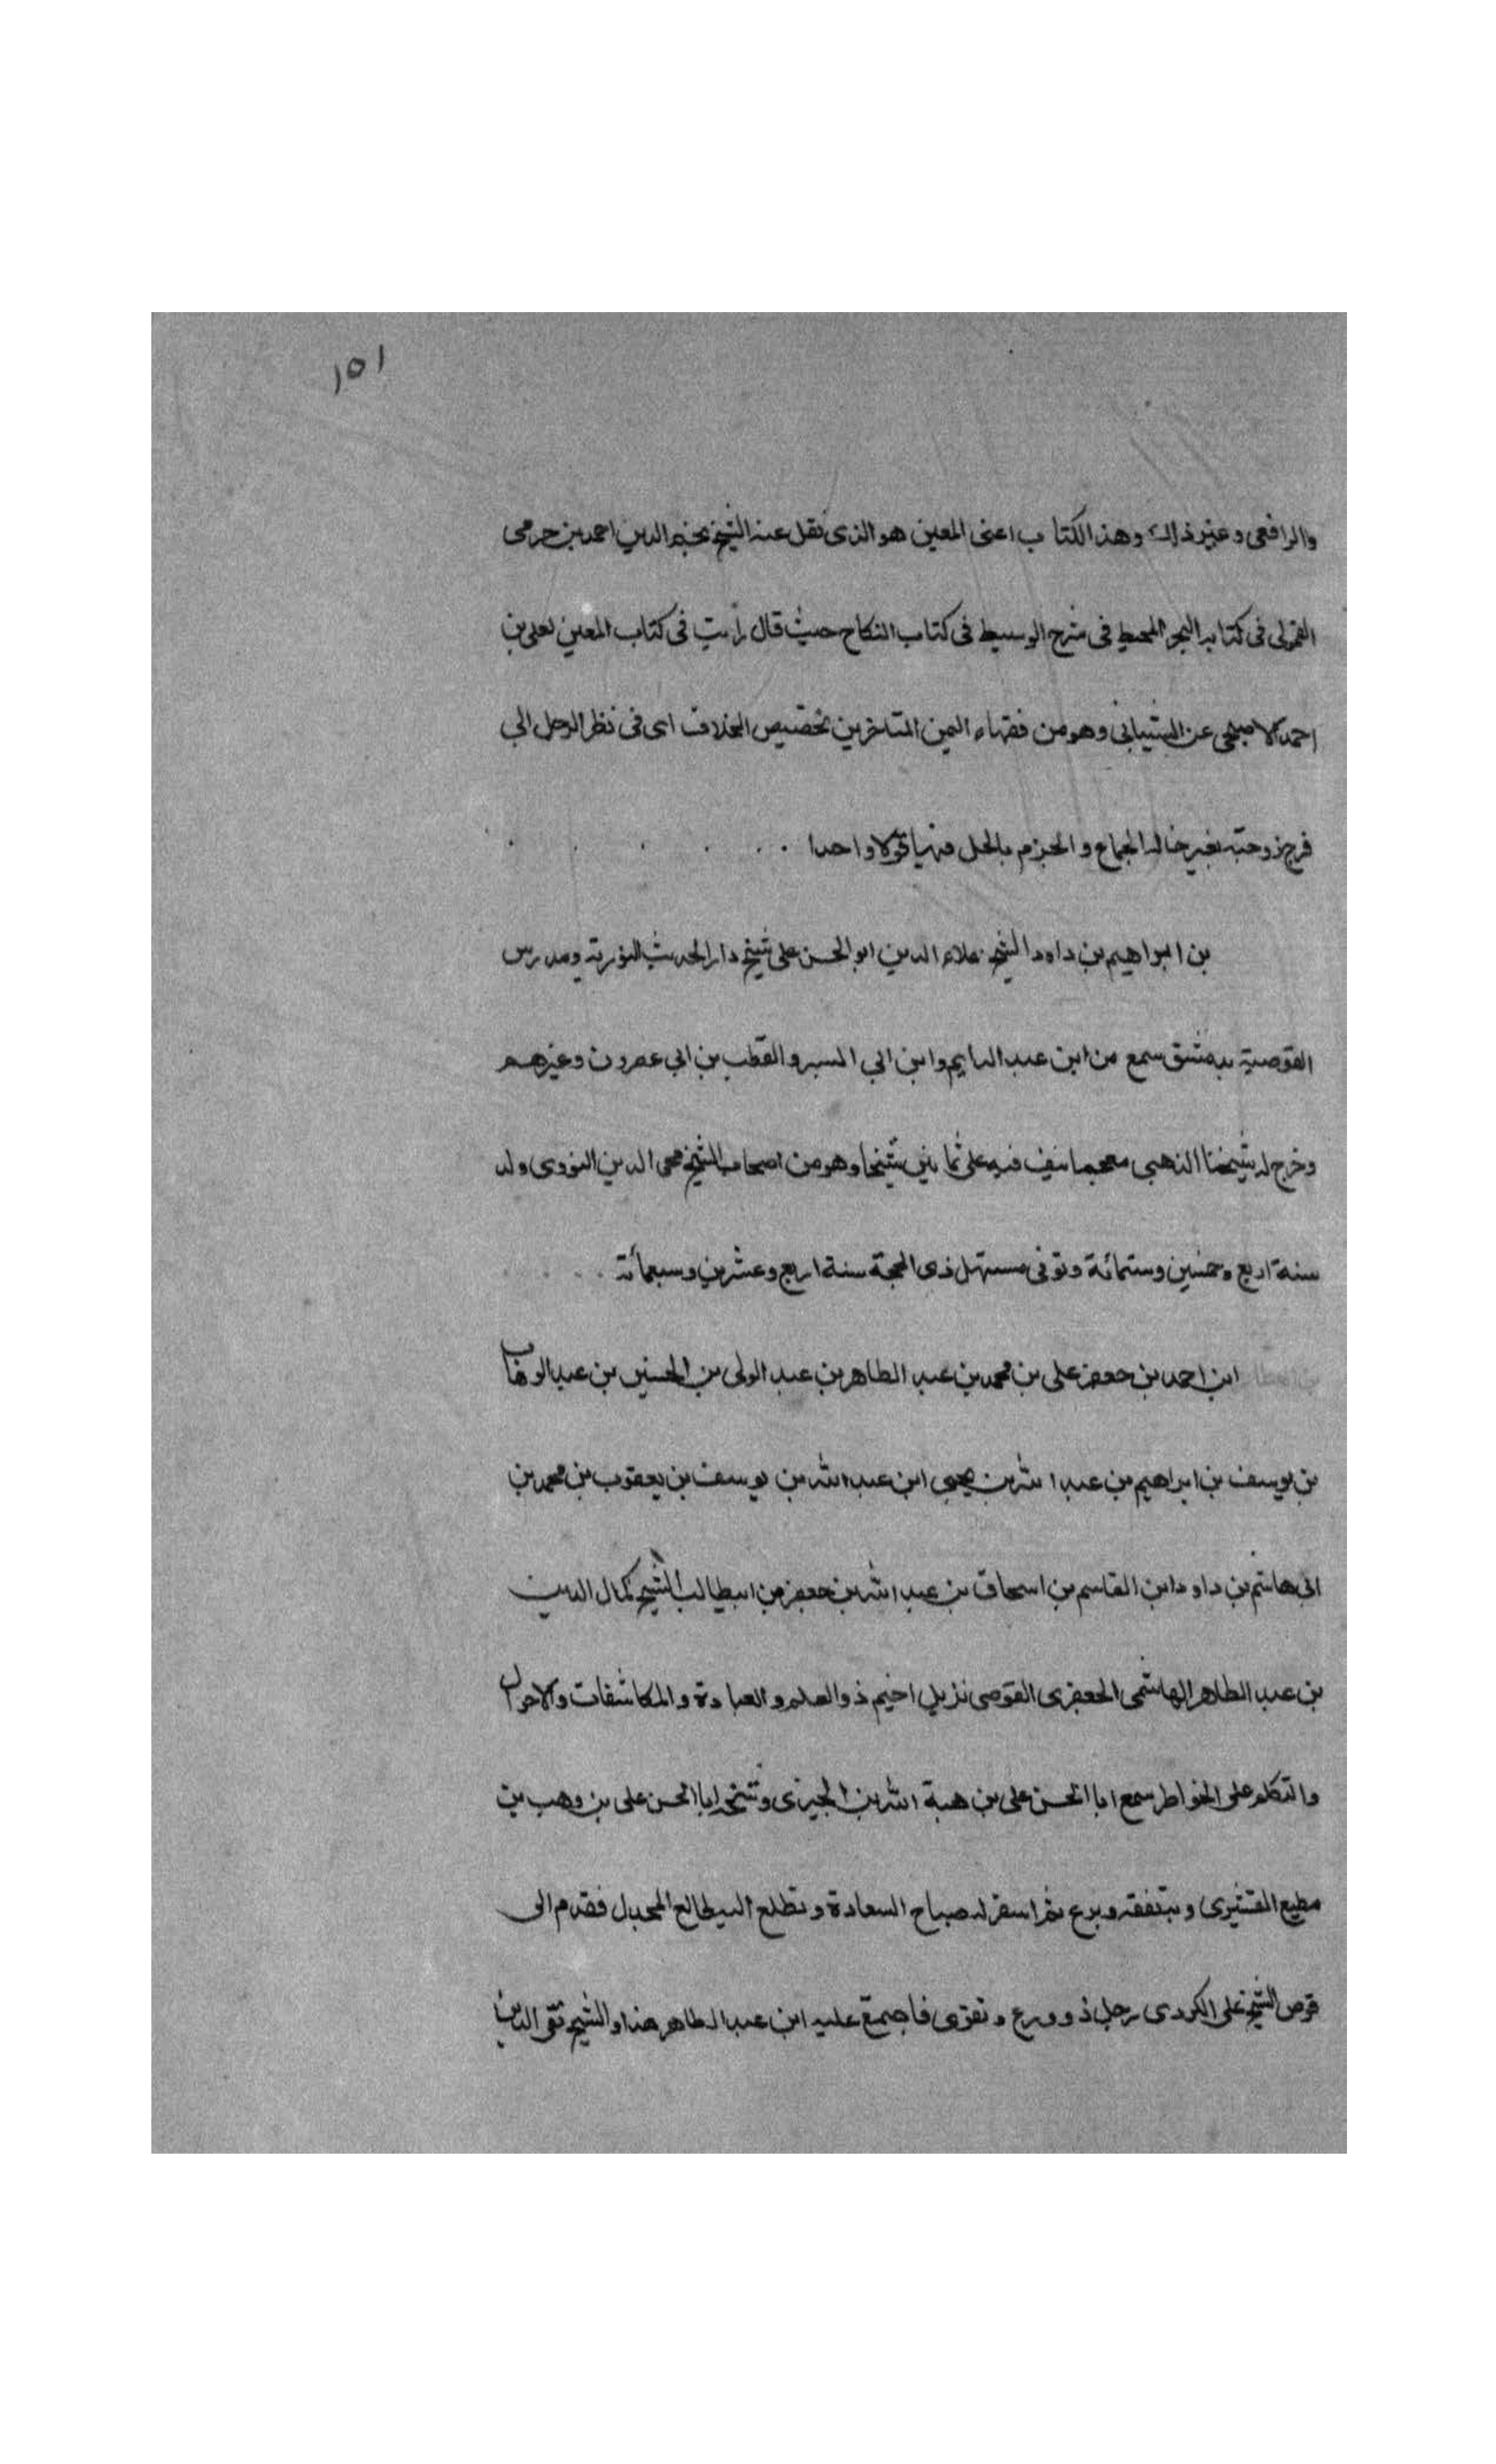 ١٥١
والرافعى وغير ذلك وهذا الكتاب اعنى المعين هو الذى نقل عنه الشيخ نجم الدين احمد بن حرمى
القمولى فى كتابه البحر المحيط فى شرح الوسيط فى كتاب النكاح حيث قال رأيت فى كتاب المعين لعلى بن
احمد الاصبحى عن الشيبانى وهو من فقهاء اليمن المتاخرين تخصيص الخلاف اى فى نظر الرجل الى
فرج زوجته بغير حالة الجماع والجزم بالحل فيها قولا واحدا
بن ابراهيم بن داود الشيخ علاء الدين ابو الحسن على شيخ دار الحديث النورية ومدرس
القوصية بدمشق سمع من ابن عبد الدايم وابن ابى اليسر والقطب بن ابى عصرون وغيرهم
وخرج له شيخنا الذهبى معجما نيف فيه على ثمانين شيخا وهو من اصحاب الشيخ محى الدين النووى ولد
سنة اربع وخمسين وستمائة وتوفى مستهل ذى الحجة سنة اربع وعشرين وسبعمائة
ابن احمد بن جعفر على بن محمد بن عبد الطاهر بن عبد الولى بن الحسين بن عبد الوهاب
بن يوسف بن ابراهيم بن عبد الله بن يحيى ابن عبد الله بن يوسف بن يعقوب بن محمد بن
ابى هاشم بن داود ابن القاسم بن اسحاق بن عبد الله بن جعفر بن ابيطالب الشيخ كمال الدين
بن عبد الطاهر الهاشمى الجعفرى القوصى نزيل اخيم ذو العلم والعبادة والمكاشفات والاحوال
والتكلم على الخواطر سمع ابا الحسن على بن هبة الله بن الجيزى وشيخه ابا الحسن على بن وهب بن
مطيع القشيرى وبتفقه وبرع ثم اسفر له صباح السعادة وتطلع اليطالع المجدل فقدم الى
قوص الشيخ على الكردى رجل ذو ورع وتقوى فاجتمع عليه ابن عبد الطاهر هذا والشيخ تقى الدين